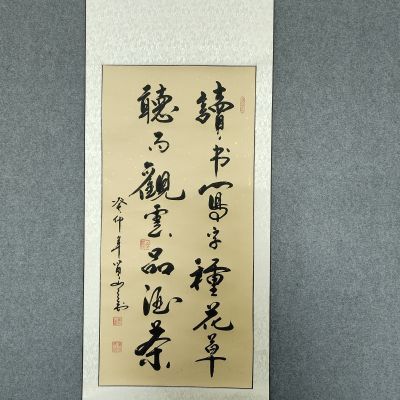 讀书寫字種花草
聽雨觀雲品酒茶